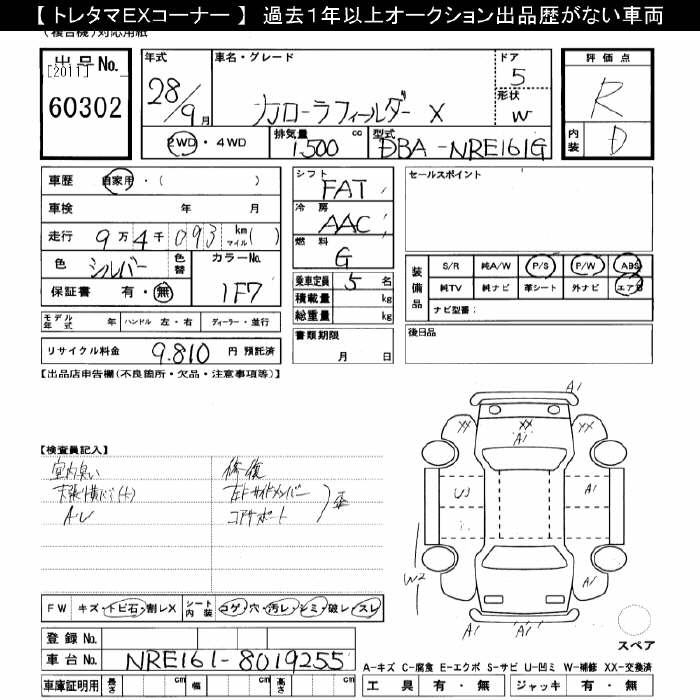 【 トレタマEXコーナー 】 過去1年以上オークション出品歴がない車両
(複合機)対応用紙
出品No.
[2011]
60302
年式
28/9月
車名・グレード
カローラフィールダー X
ドア
5
形状
W
評価点
R
内装
D
2WD・4WD
排気量
1,500 cc
型式
DBA-NRE161G
車歴 自家用・( )
車検 年 月
走行 9万4千093 km マイル( )
色 シルバー
色替
カラーNo.
1F7
保証書 有・無
モデル年式 年 ハンドル 左・右 ディーラー・並行
リサイクル料金 9,810 円 預託済
シフト
FAT
冷房
AAC
燃料
G
乗車定員 5 名
積載量 kg
総重量 kg
書類期限
月 日
セールスポイント
装備品
S/R 純A/W P/S P/W ABS
純TV 純ナビ 革シート 外ナビ エアB
ナビ型番:
後日品
【出品店申告欄(不良箇所・欠品・注意事項等)】
【検査員記入】
室内臭い
A・U
修復
左トサイドメンバー
コアサポート
歪
A1
XX
XX
A1
XX
U3
A1
A1
W2
A1
A1
スペア
FW キズ・トビ石・割レX
シート内装 コゲ・穴・汚レ・シミ・破レ・スレ
登録No.
車台No. NRE161-8019255
車庫証明用 長さ cm 幅 cm 高さ cm
A-キズ C-腐食 E-エクボ S-サビ U-凹ミ W-補修 XX-交換済
工具 有・無 ジャッキ 有・無